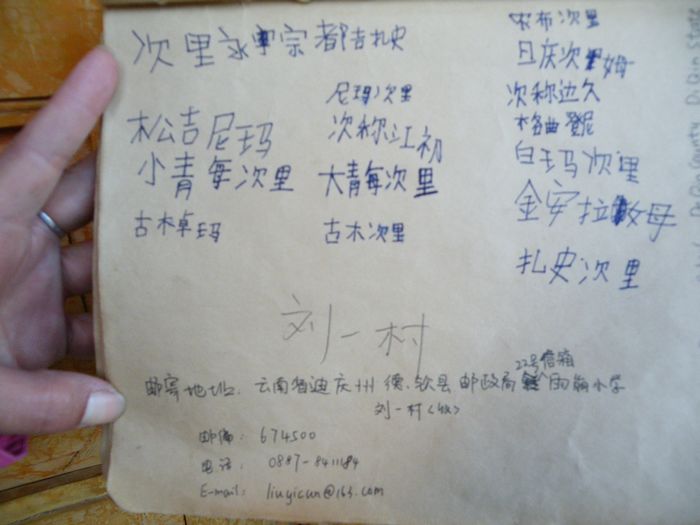 次里永宗 都吉扎史
尼玛次里
松吉尼玛 次称江初
小青每次里 大青每次里
古木卓玛 古木次里
布次里
旦庆次姆
次称边久
格曲登尼
白玛次里
金安拉母
扎史次里
刘一村
邮寄地址: 云南省迪庆州德钦县邮政局22号信箱 雨崩小学
刘一村(收)
邮编: 674500
电话: 0887-8411484
E-mail: liuyicun@163.com